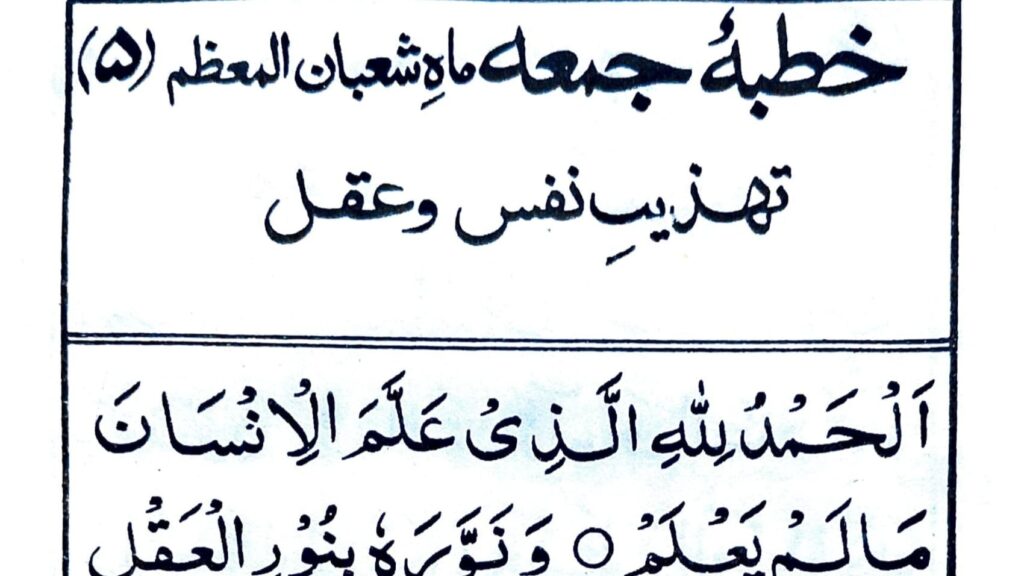 خطبۂ جمعہ ماہِ شعبان المعظم (۵)
تہذیبِ نفس و عقل
اَلْحَمْدُ لِلّٰهِ الَّـذِیْ عَلَّمَ الْاِنْسَانَ
مَا لَـمْ یَعْـلَـمْ ○ وَ نَـوَّرَہٗ بِنُوْرِ الْعَقْلِ